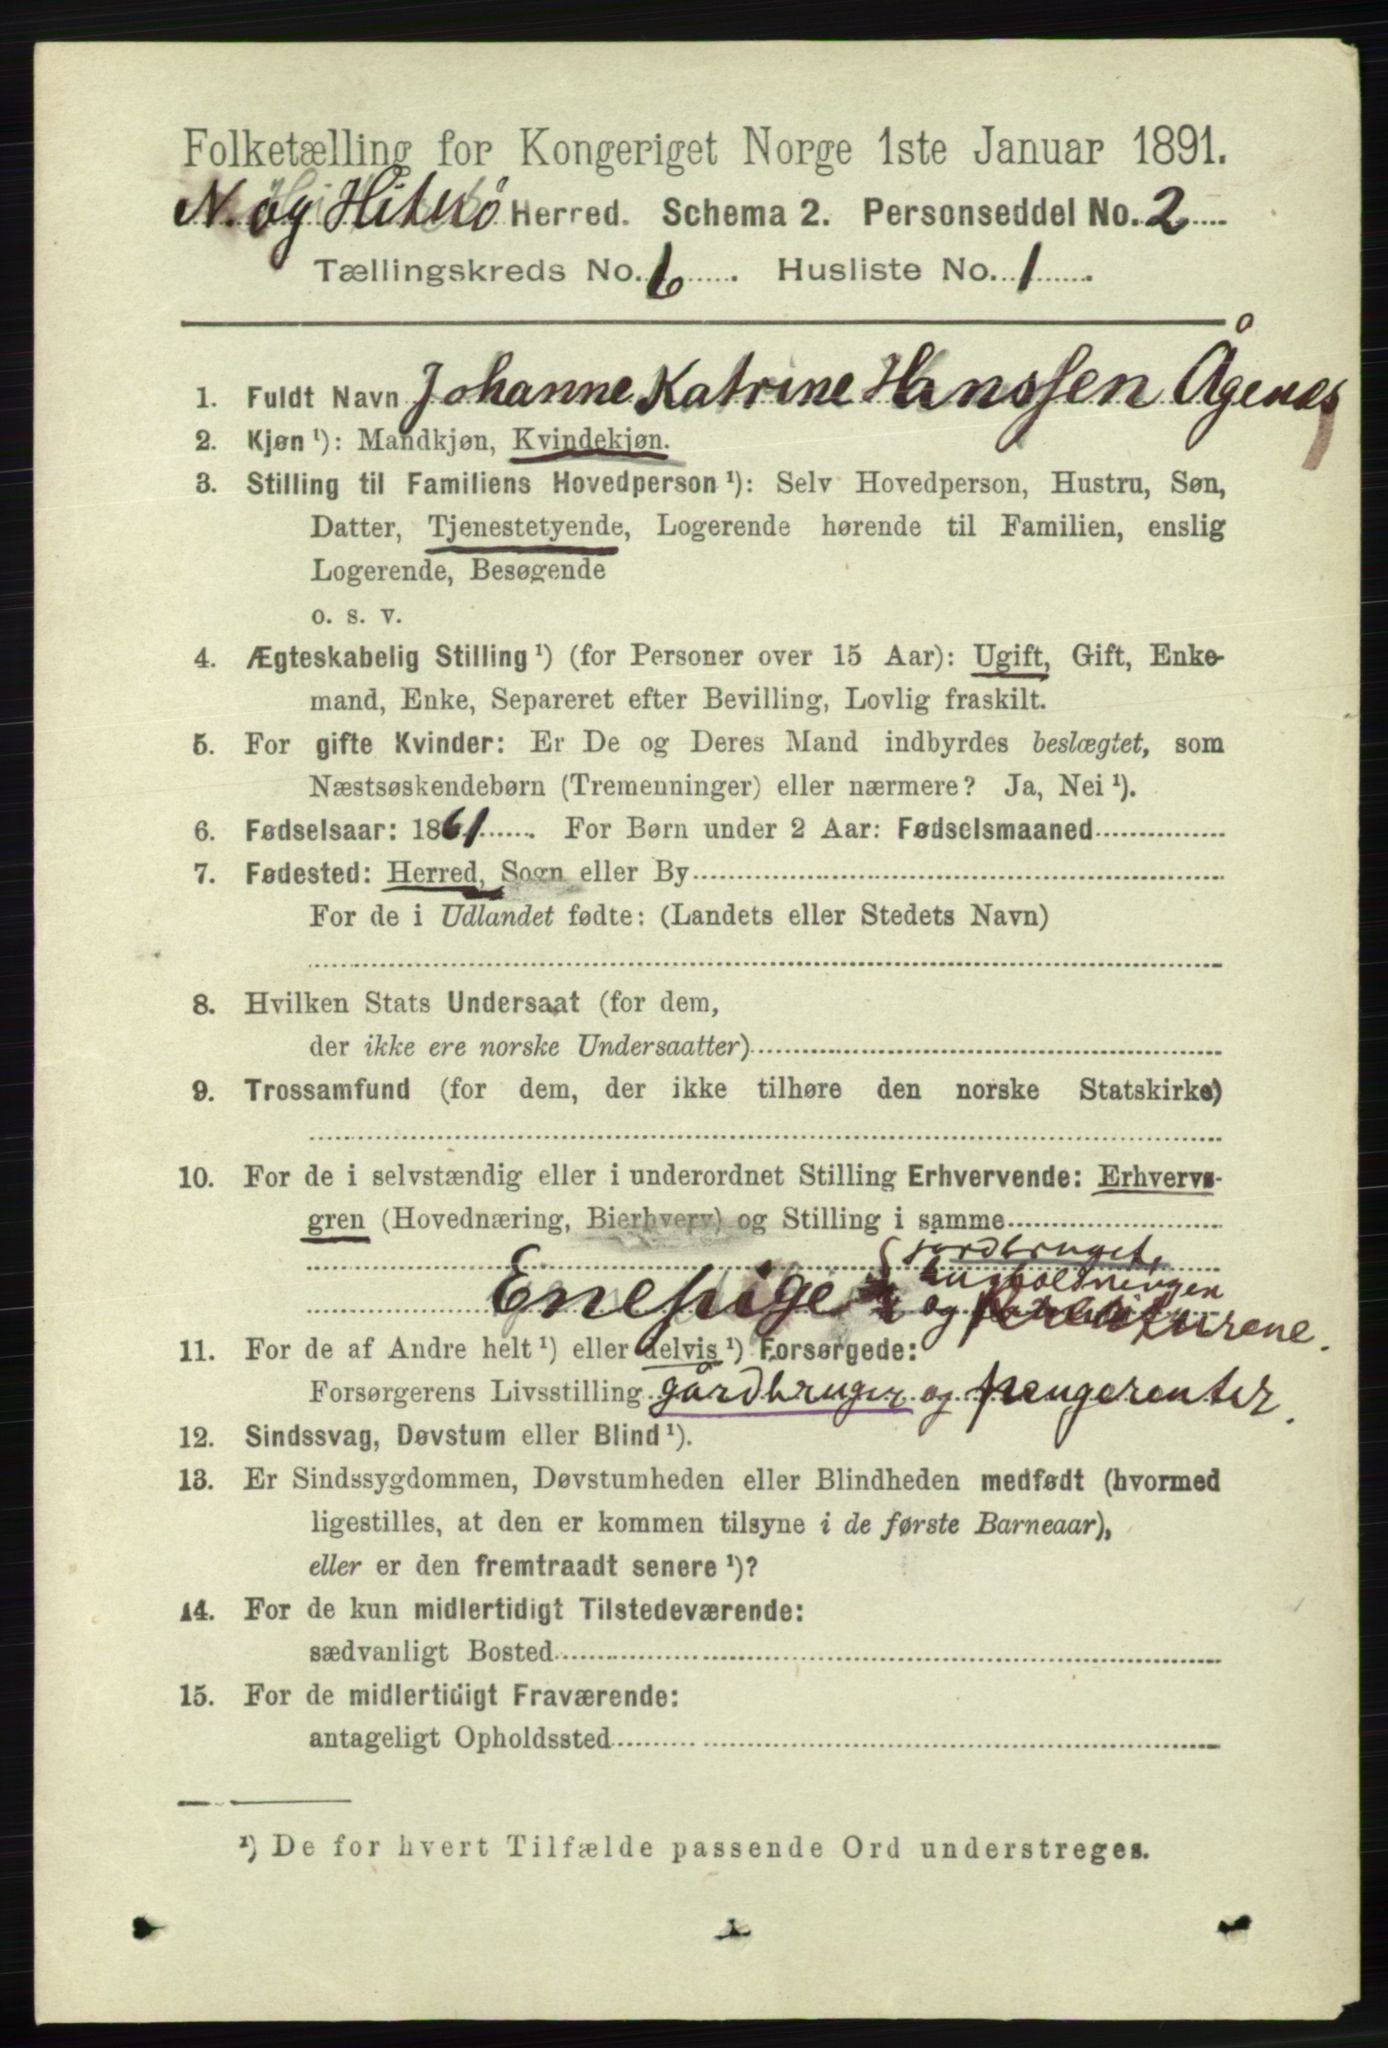 Folketælling for Kongeriget Norge 1ste Januar 1891.
N. og Hiterø Herred. Schema 2. Personseddel No. 2
Tællingskreds No. 6. Husliste No. 1.
1. Fuldt Navn Johanne Katrine Hanssen Ågenes
2. Kjøn ¹): Mandkjøn, Kvindekjøn.
3. Stilling til Familiens Hovedperson ¹): Selv Hovedperson, Hustru, Søn,
Datter, Tjenestetyende, Logerende hørende til Familien, enslig
Logerende, Besøgende
o. s. v.
4. Ægteskabelig Stilling ¹) (for Personer over 15 Aar): Ugift, Gift, Enke-
mand, Enke, Separeret efter Bevilling, Lovlig fraskilt.
5. For gifte Kvinder: Er De og Deres Mand indbyrdes beslægtet, som
Næstsøskendebørn (Tremenninger) eller nærmere? Ja, Nei ¹).
6. Fødselsaar: 1861. For Børn under 2 Aar: Fødselsmaaned
7. Fødested: Herred, Sogn eller By
For de i Udlandet fødte: (Landets eller Stedets Navn)
8. Hvilken Stats Undersaat (for dem,
der ikke ere norske Undersaatter)
9. Trossamfund (for dem, der ikke tilhøre den norske Statskirke)
10. For de i selvstændig eller i underordnet Stilling Erhvervende: Erhvervs-
gren (Hovednæring, Bierhverv) og Stilling i samme
jordbruget,
husholdningen
Enepige og kreaturene.
11. For de af Andre helt ¹) eller delvis ¹) Forsørgede:
Forsørgerens Livsstilling gårdbruger og pengerenter.
12. Sindssvag, Døvstum eller Blind ¹).
13. Er Sindssygdommen, Døvstumheden eller Blindheden medfødt (hvormed
ligestilles, at den er kommen tilsyne i de første Barneaar),
eller er den fremtraadt senere ¹)?
14. For de kun midlertidigt Tilstedeværende:
sædvanligt Bosted
15. For de midlertidigt Fraværende:
antageligt Opholdssted
¹) De for hvert Tilfælde passende Ord understreges.